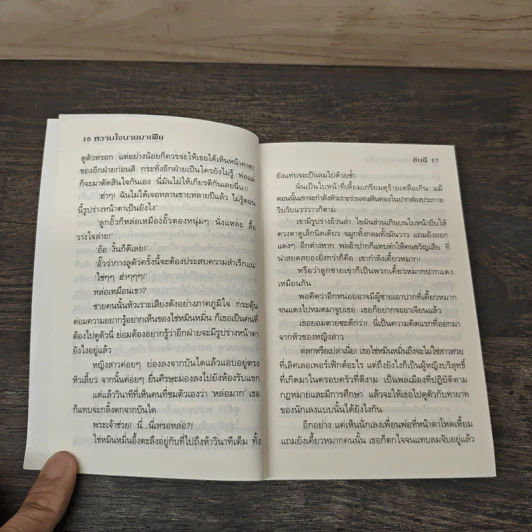 16 หวานใจนายมาเฟีย
ดูตัวหรอก แต่อย่างน้อยก็ควรจะให้เธอได้เห็นหน้าค่าตา
ของอีกฝ่ายก่อนสิ กระทั่งอีกฝ่ายเป็นใครยังไม่รู้ พ่อแม่
ก็จะมาตัดสินใจกันเอง นี่มันไม่ให้เกียรติกันเลยนี่นา!
'ฮ่าๆ! ฉันไม่ได้เจอหลานชายหลายปีแล้ว ไม่รู้ตอน
นี้รูปร่างหน้าตาเป็นยังไง'
'ลูกอั๊วก็หล่อเหมือนอั๊วตอนหนุ่มๆ นั่งแหละ ลื้อ
วางใจล่ะ!'
'อ้อ งั้นก็ดีเลย!'
'อั๊วว่ากางดูตัวครั้งนี้จะต้องประสบความสำเร็จแน่'
'ใช่ๆๆ ฮ่าๆๆๆ!'
หล่อเหมือนเขา?
ชายคนนั้นหัวเราะเสียงดังอย่างภาคภูมิใจ กระตุ้น
ต่อมความอยากรู้อยากเห็นของไช่หมิ่นหมิ่น ก็เธอเป็นคนที่
ต้องไปดูตัวนี่ ย่อมต้องอยากรู้ว่าอีกฝ่ายจะมีรูปร่างหน้าตา
ยังไงอยู่แล้ว
หญิงสาวค่อยๆ ย่องลงจากบันไดแล้วแอบอยู่ตรง
หัวเลี้ยว จากนั้นค่อยๆ ยื่นศีรษะมองลงไปยังห้องรับแขก
แต่แล้ววินาทีที่เห็นคนที่ชมตัวเองว่า 'หล่อมาก' เธอก็
ก็แทบจะกลิ้งตกจากบันได
พระเจ้าช่วย! นี่...นี่เหรอหล่อ?!
ไช่หมิ่นหมิ่นอึ้งตะลึงอยู่กับที่ไปถึงห้าวินาทีเต็ม ทั้ง
อันฉี 17
ยังแทบจะเป็นลมไปด้วยซ้ำ
นั่นเป็นใบหน้าที่เหี้ยมเกรียมดุร้ายเหลือเกิน แม้
ตอนนั้นเขาจะกำลังหัวเราะจนฟันทองในปากส่องประกาย
วิบวับแวววาวก็ตาม
เขามีรูปร่างอ้วนล่ำ ไขมันส่วนเกินบนใบหน้าบีบให้
ดวงตาดูเล็กนิดเดียว จมูกทั้งกลมทั้งเม้นวาว แถมยังออก
แดงๆ อีกต่างหาก พออ้าปากก็แทบทำให้คนขวัญเสีย ที่
น่าสยดสยองยิ่งกว่าก็คือ เขากำลังเคี้ยวหมาก!
หรือว่าลูกชายเขาก็เป็นพวกเคี้ยวหมากปากแดง
เหมือนกัน
พอคิดว่าอีกหน่อยอาจมีผู้ชายเอาปากที่เคี้ยวหมาก
จนแดงไปหมดมาจูบเธอ เธอก็อยากจะอาเจียนแล้ว
เธอยอมตายซะดีกว่า! นี่เป็นความคิดแรกที่ออกมา
จากหัวของหญิงสาว
ตลกหรือเปล่าเนี่ย เธอไช่หมิ่นหมิ่นถึงจะไม่ใช่สาวสวย
ที่เลิศเลอเพอร์เฟ็กต์อะไร แต่ถึงยังไงก็เป็นผู้หญิงบริสุทธิ์
ที่เกิดมาในครอบครัวที่ดีงาม เป็นพลเมืองที่ปฏิบัติตาม
กฎหมายและมีการศึกษา แล้วจะให้เธอไปดูตัวกับทายาท
ของนักเลงแบบนั้นได้ยังไงกัน
อีกอย่าง แค่เห็นนักเลงเพื่อนพ่อที่หน้าตาโหดเหี้ยม
แถมยังเคี้ยวหมากคนนั้น เธอก็ตกใจจนแทบลมจับอยู่แล้ว